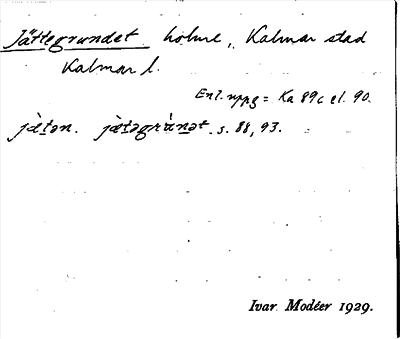 Jättegrundet holme, Kalmar stad
Kalmar l.
Enl. uppg = Ka 89c el. 90.
jæ̀tən. jæ̀təgrùnət. s. 88, 93.
Ivar Modéer 1929.